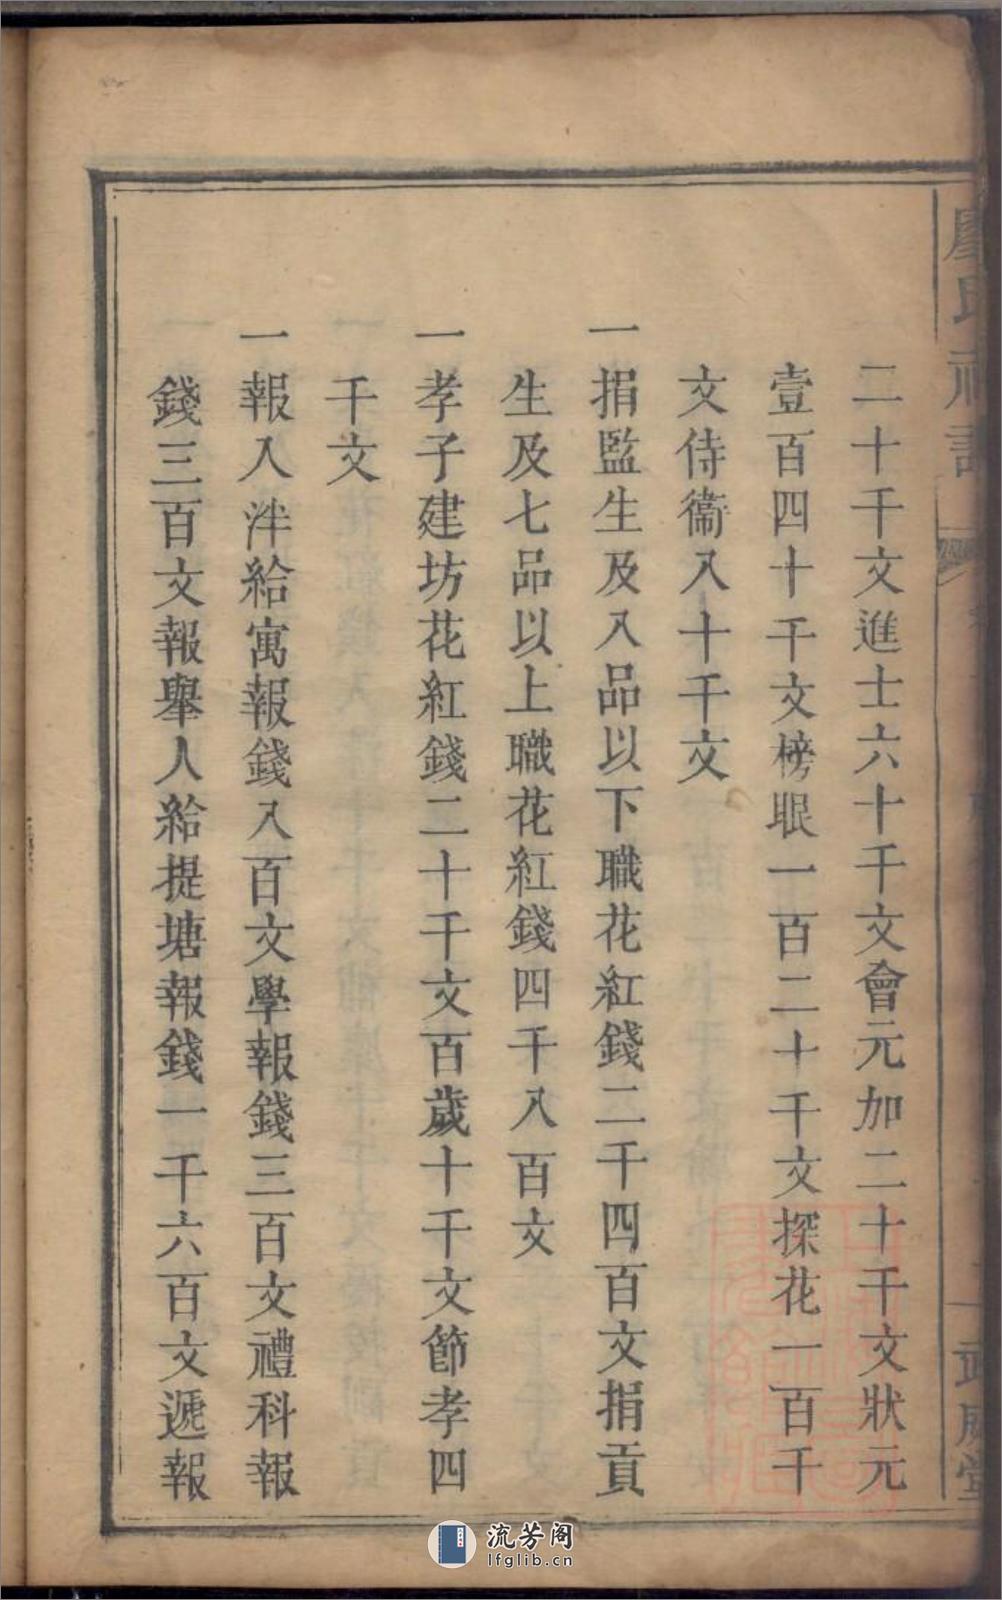 二十千文進士六十千文會元加二十千文狀元
壹百四十千文榜眼一百二十千文探花一百千
文侍衞八十千文
一捐監生及八品以下職花紅錢二千四百文捐貢
生及七品以上職花紅錢四千八百文
一孝子建坊花紅錢二十千文百歲十千文節孝四
千文
一報入泮給寓報錢八百文學報錢三百文禮科報
錢三百文報舉人給提塘報錢一千六百文遞報
流芳阁
lfglib.cn